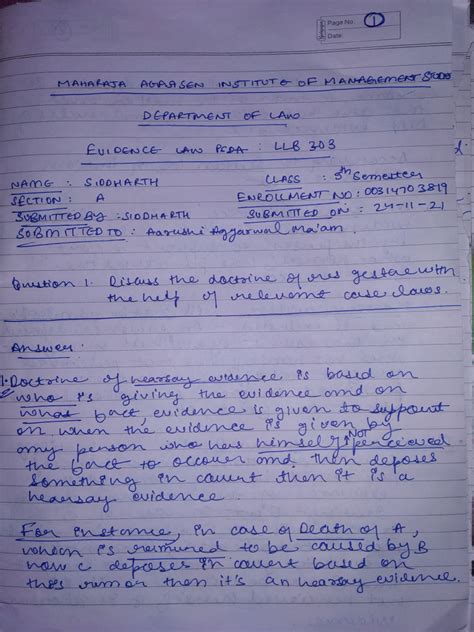 Page No. 1
Date:
MAHARAJA AGRASEN INSTITUTE OF MANAGEMENT STUDIES
DEPARTMENT OF LAW
EVIDENCE LAW PSDA : LLB 303
NAME : SIDDHARTH CLASS : 5th Semester
SECTION : A ENROLLMENT NO : 00314703819
SUBMITTED BY : SIDDHARTH SUBMITTED ON : 24-11-21
SUBMITTED TO : Aarushi Aggarwal Ma'am.
Question 1. Discuss the doctrine of res gestae with
the help of relevant case laws.
Answer:
1. Doctrine of hearsay evidence is based on
who is giving the evidence and on
what fact, evidence is given to support
on when the evidence is given by
any person who has himself not perceived
the fact to occur and then deposes
something in court then it is a
hearsay evidence.
For instance, in case of Death of A,
whom is rumured to be caused by B
now C deposes in court based on
this rumor then it's an hearsay evidence.